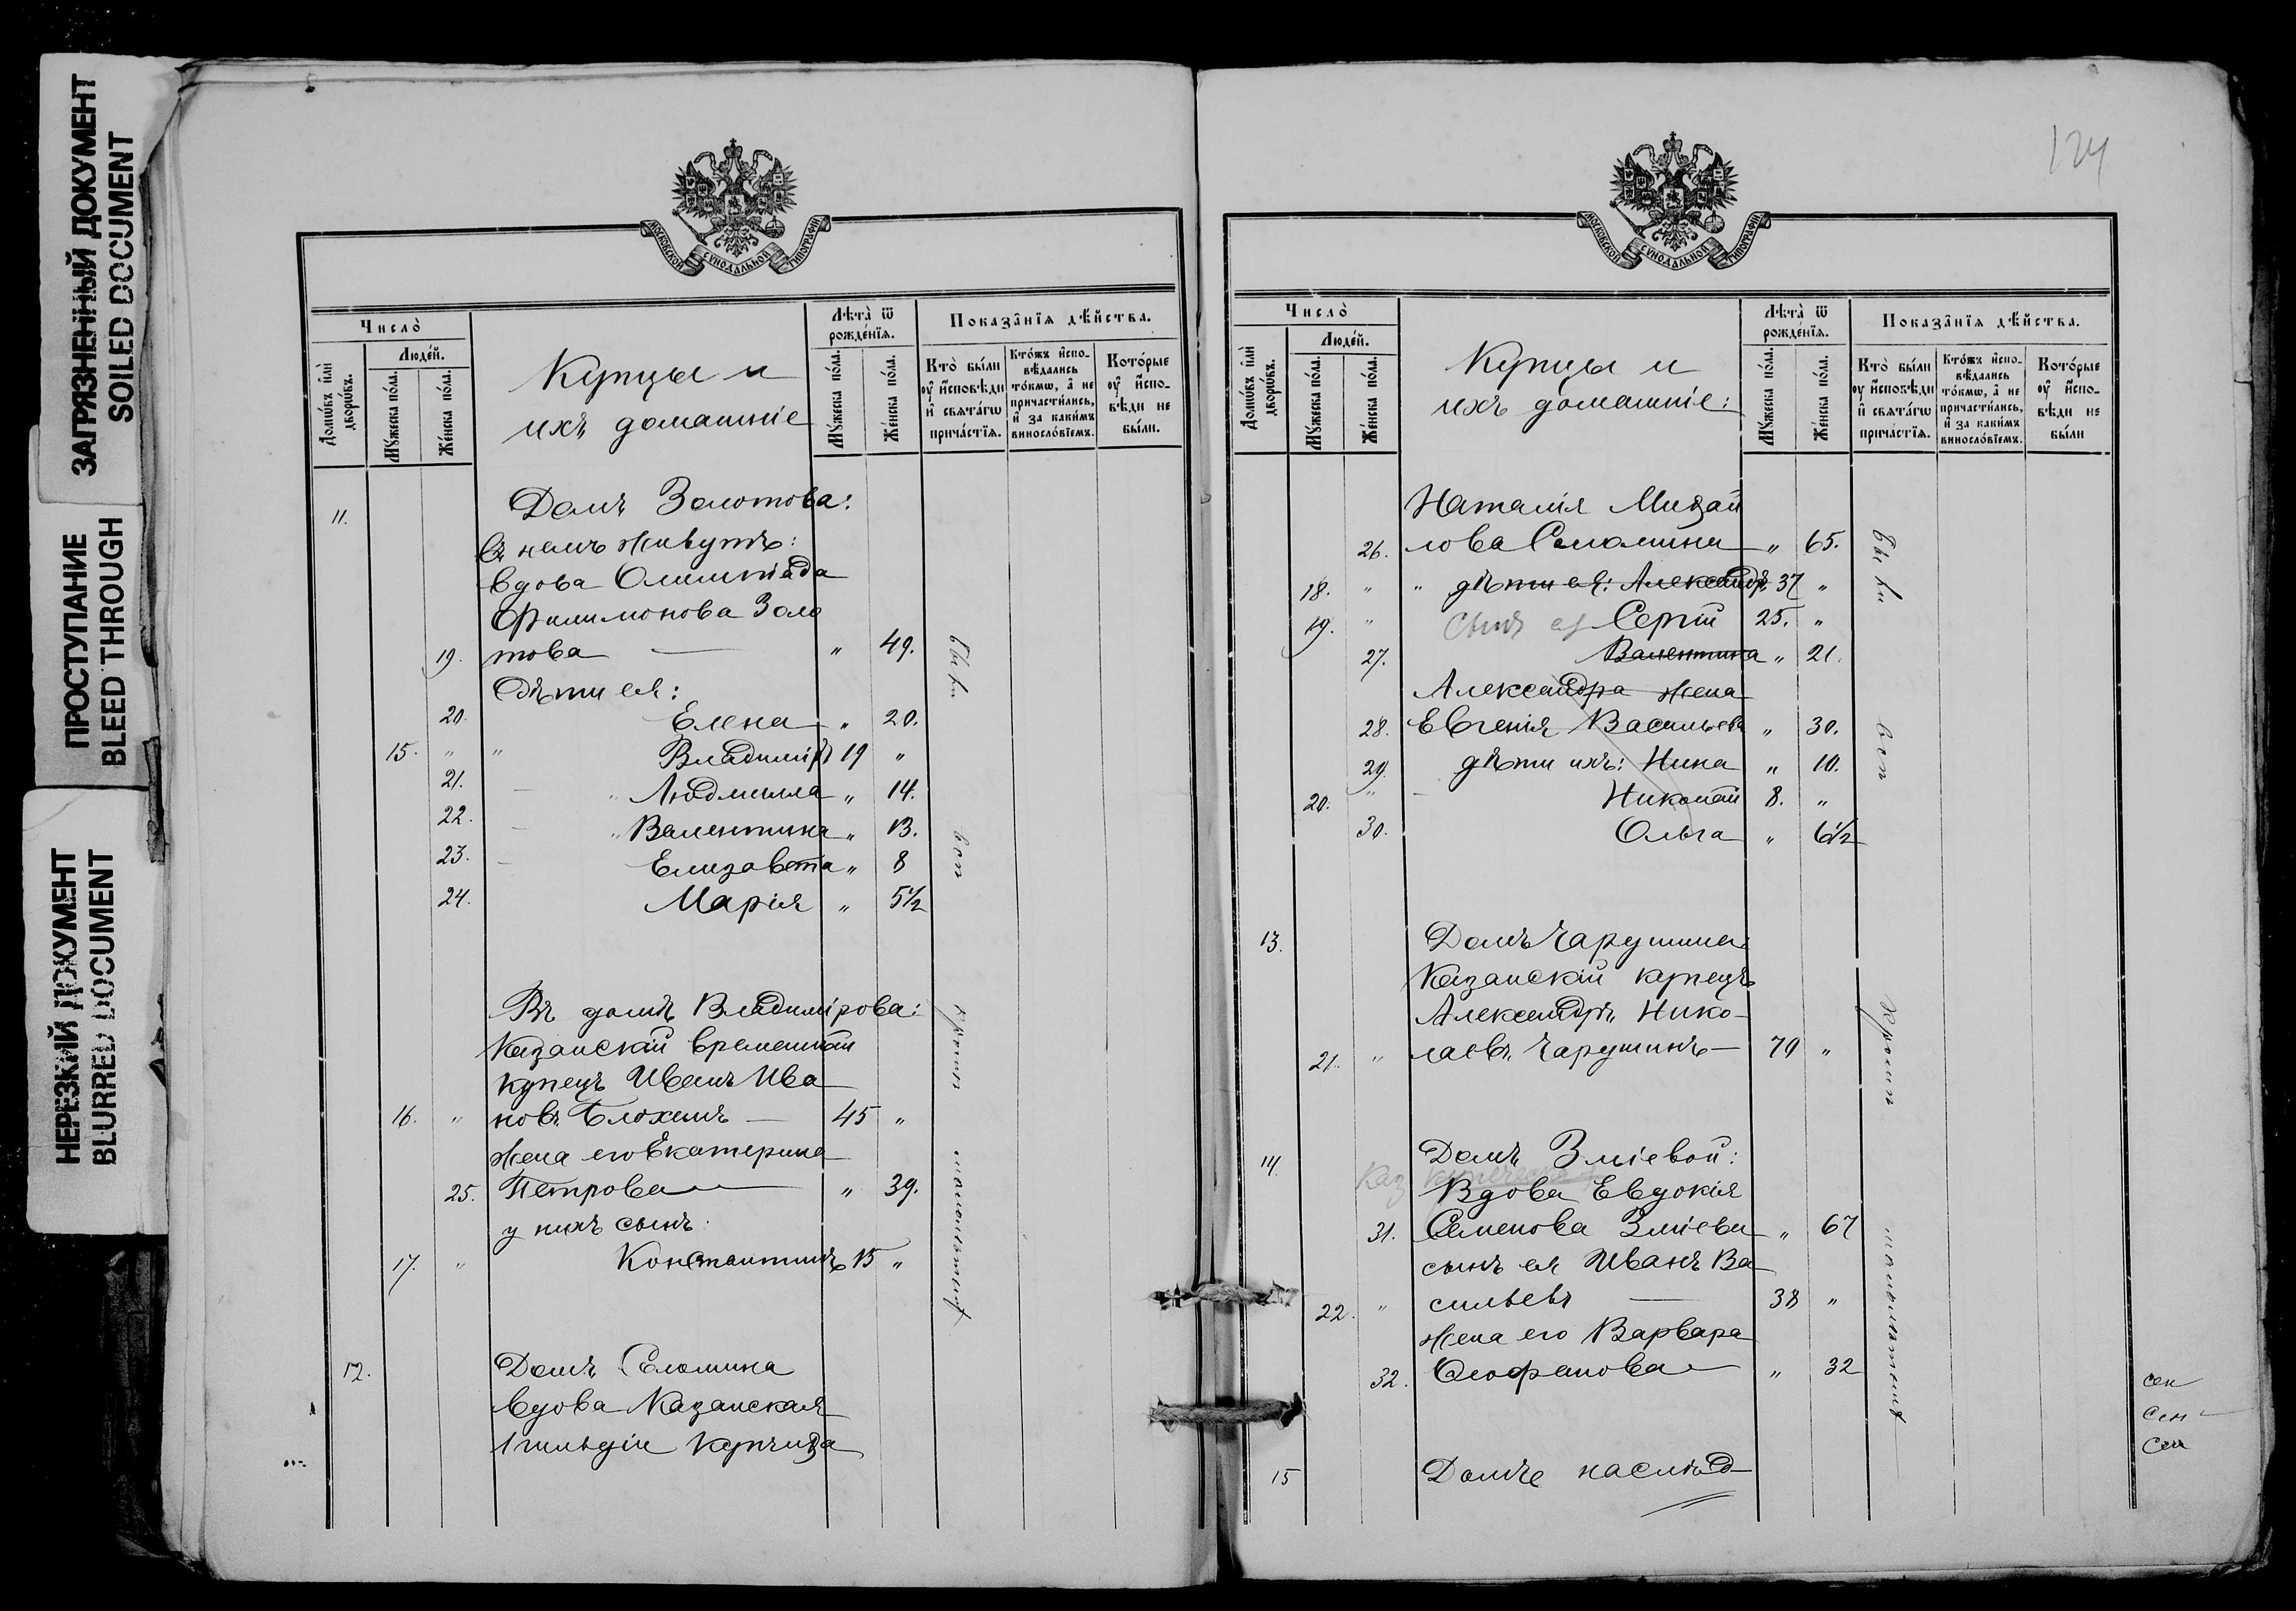 ЗАГРЯЗНЕННЫЙ ДОКУМЕНТ
SOILED DOCUMENT
ПРОСТУПАНИЕ
BLEED THROUGH
НЕРЕЗКИЙ ДОКУМЕНТ
BLURRED DOCUMENT
МОСКОВСКОЙ СѴНОДАЛЬНОЙ ТИПОГРАФІИ
Число̀
Людей.
Домѡвъ илѝ дворѡвъ.
Мꙋжеска пола.
Женска пола.
Купцы и
ихъ домашніе
Лѣта̀ ѿ рожденїѧ.
Мꙋжеска пола.
Женска пола.
Показанїѧ дѣйства.
Кто̀ были оу исповѣди и свѧтагѡ причастїѧ.
Ктожъ исповѣдались токмѡ, а не причастились, и за какимъ винословїемъ.
Которые оу исповѣди не были.
11. Домъ Золотова:
Въ немъ живутъ:
Вдова Олимпіада
Филимонова Золо
19. това — " 49.
Дѣти ея:
20. Елена " 20.
15. " " Владиміръ 19 "
21. Людмилла " 14.
22. Валентина " 13.
23. Елизавета " 8
24. Марія " 5 1/2
были
вси
Въ домѣ Владимірова:
Казанскій временный
купецъ Иванъ Ива
16. " новъ Блохинъ — 45 "
жена его Екатерина
25. Петрова " 39.
у нихъ сынъ:
17. " Константинъ 15 "
кромѣ
малолѣтнихъ
12. Домъ Соломина
Вдова Казанская
1 гильдіи купчиха
124
МОСКОВСКОЙ СѴНОДАЛЬНОЙ ТИПОГРАФІИ
Число̀
Людей.
Домѡвъ илѝ дворѡвъ.
Мꙋжеска пола.
Женска пола.
Купцы и
ихъ домашніе:
Лѣта̀ ѿ рожденїѧ.
Мꙋжеска пола.
Женска пола.
Показанїѧ дѣйства.
Кто̀ были оу исповѣди и свѧтагѡ причастїѧ.
Ктожъ исповѣдались токмѡ, а не причастились, и за какимъ винословїемъ.
Которые оу исповѣди не были
Наталія Михай
26. лова Соломина " 65.
18. " " дѣти ея: Александръ 37 "
19. " сынъ ея Сергій 25. "
27. Валентина " 21.
Александра жена
28. Евгенія Васильева " 30.
29. дѣти ихъ: Нина " 10.
20. " Николай 8. "
30. Ольга " 6 1/2
были
вси
13. Домъ Чарушина:
Казанскій купецъ
Александръ Нико-
21. " лаевъ Чарушинъ — 79 "
кромѣ
14. Домъ Зміевой:
Каз купеческая
Вдова Евдокія
31. Семенова Зміева " 67
сынъ ея Иванъ Ва
22. " сильевъ — 38 "
жена его Варвара
32. Ѳеофанова " 32
малолѣтнихъ
сен
сен
сен
15 Домъ наслѣд